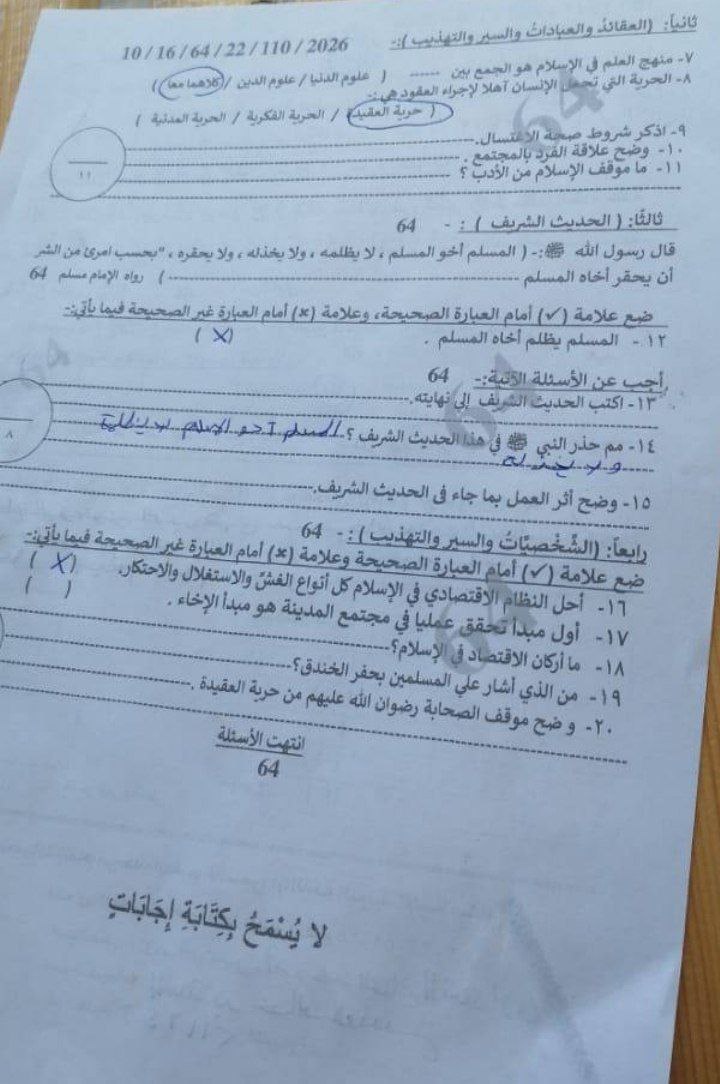 ثانياً: (العقائد والعبادات والسير والتهذيب ):-
10/16/64/22/110/2026
٧- منهج العلم في الإسلام هو الجمع بين ...... ( علوم الدنيا / علوم الدين / كلاهما معا )
٨- الحرية التي تجعل الإنسان آهلا لإجراء العقود هي:-
( حرية العقيدة / الحرية الفكرية / الحرية المدنية )
٩- اذكر شروط صحة الاغتسال.
١٠- وضح علاقة الفرد بالمجتمع .
١١- ما موقف الإسلام من الأدب ؟
١١
ثالثًا: ( الحديث الشريف ) : - 64
قال رسول الله ﷺ:- ( المسلم أخو المسلم ، لا يظلمه ، ولا يخذله ، ولا يحقره ، "بحسب امرئ من الشر
أن يحقر أخاه المسلم ) رواه الإمام مسلم 64
ضع علامة (✓) أمام العبارة الصحيحة، وعلامة (×) أمام العبارة غير الصحيحة فيما يأتي:-
١٢- المسلم يظلم أخاه المسلم . (X)
أجب عن الأسئلة الآتية:- 64
١٣- اكتب الحديث الشريف إلى نهايته.
١٤- مم حذر النبي ﷺ في هذا الحديث الشريف ؟ المسلم أخو الإسلام لا يظلمه
ولا يخذله
٨
١٥- وضح أثر العمل بما جاء في الحديث الشريف.
رابعاً: (الشَّخْصِيَّاتُ والسير والتهذيب ) : - 64
ضع علامة (✓) أمام العبارة الصحيحة وعلامة (×) أمام العبارة غير الصحيحة فيما يأتي:-
١٦- أحل النظام الاقتصادي في الإسلام كل أنواع الغشّ والاستغلال والاحتكار. (X)
١٧- أول مبدأ تحقق عمليا في مجتمع المدينة هو مبدأ الإخاء . ( )
١٨- ما أركان الاقتصاد في الإسلام؟
١٩- من الذي أشار علي المسلمين بحفر الخندق؟
٢٠- و ضح موقف الصحابة رضوان الله عليهم من حرية العقيدة .
انتهت الأسئلة
64
لا يُسْمَحُ بِكِتَابَةِ إِجَابَاتٍ
64
64
64
64